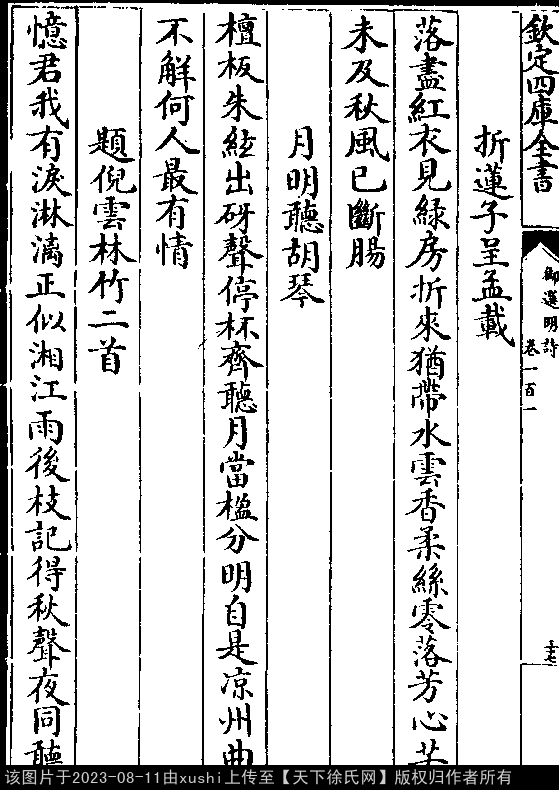 欽定四庫全書
御選明詩
卷一百一
十七
折蓮子呈孟載
落盡紅衣見緑房折來猶帶水雲香柔絲零落芳心苦
未及秋風已斷腸
月明聽胡琴
檀板朱絃出砑聲停杯齊聽月當楹分明自是凉州曲
不解何人最有情
題倪雲林竹二首
憶君我有淚淋漓正似湘江雨後枝記得秋聲夜同聽
该图片于2023-08-11由xushi上传至【天下徐氏网】版权归作者所有